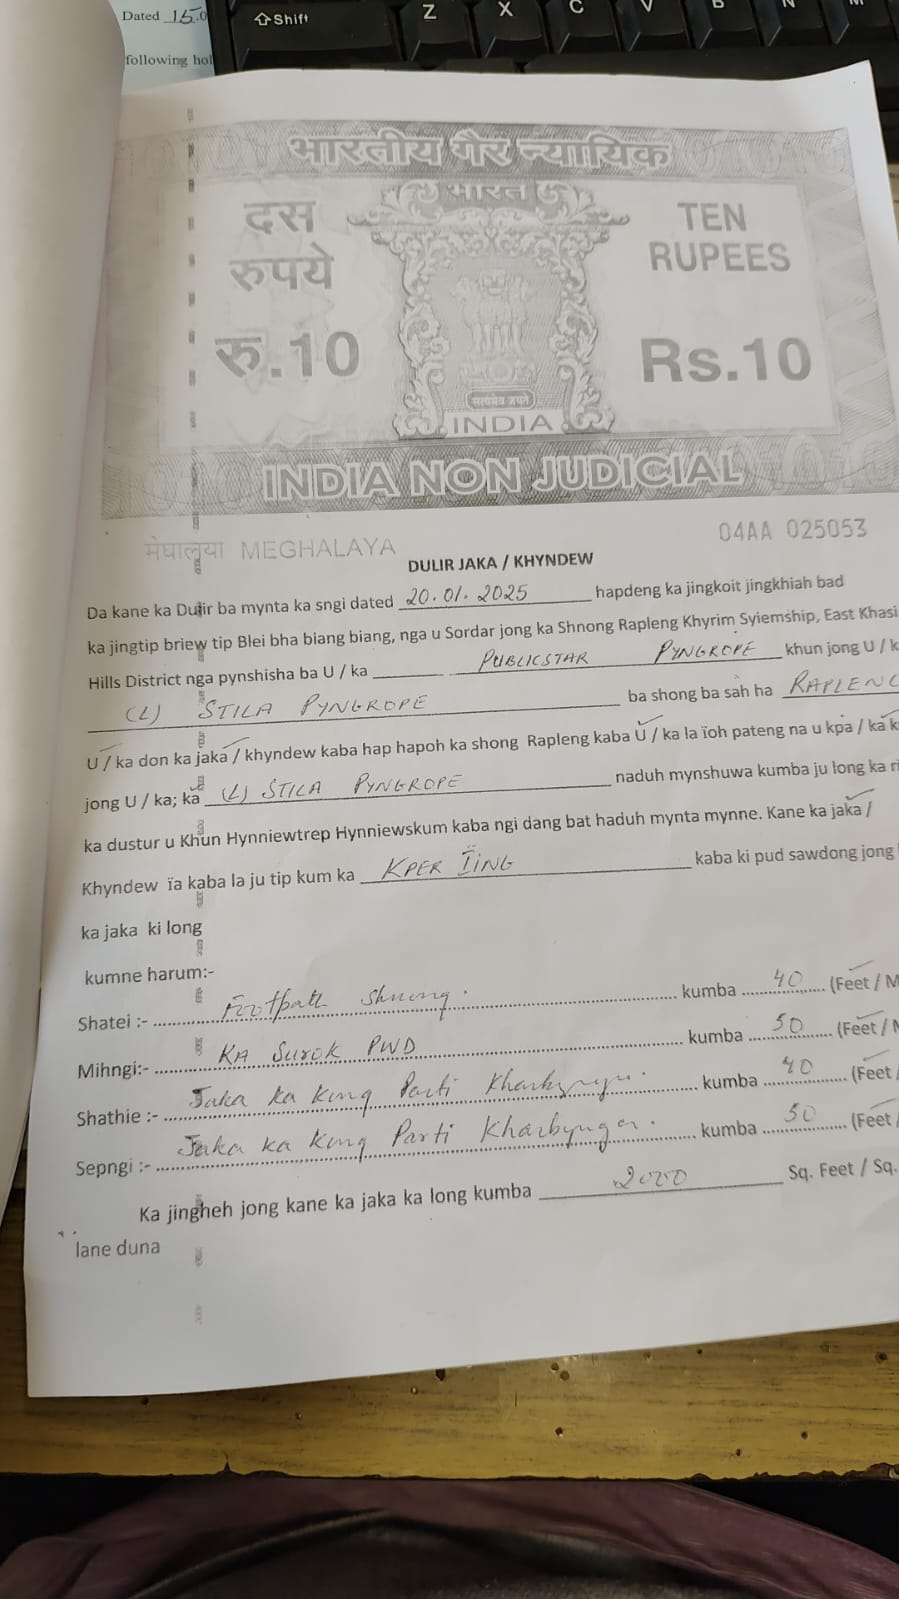 Dated 15.0
following hol
Shift Z X C V B N M
भारतीय गैर न्यायिक
भारत
दस
रुपये
रु.10
TEN
RUPEES
Rs.10
सत्यमेव जयते
INDIA
INDIA NON JUDICIAL
मेघालया MEGHALAYA
04AA 025053
DULIR JAKA / KHYNDEW
Da kane ka Dulir ba mynta ka sngi dated 20.01.2025 hapdeng ka jingkoit jingkhiah bad
ka jingtip briew tip Blei bha biang biang, nga u Sordar jong ka Shnong Rapleng Khyrim Syiemship, East Khasi
Hills District nga pynshisha ba U / ka PUBLICSTAR PYNGROPE khun jong U / k
(L) STILA PYNGROPE ba shong ba sah ha RAPLENG
U / ka don ka jaka / khyndew kaba hap hapoh ka shong Rapleng kaba U / ka la ïoh pateng na u kpa / ka k
jong U / ka; ka (L) STILA PYNGROPE naduh mynshuwa kumba ju long ka ri
ka dustur u Khun Hynniewtrep Hynniewskum kaba ngi dang bat haduh mynta mynne. Kane ka jaka /
Khyndew ïa kaba la ju tip kum ka KPER ÏING kaba ki pud sawdong jong
ka jaka ki long
kumne harum:-
Shatei :- Footpath Shnong. kumba 40 (Feet / M
Mihngi:- KA SUROK PWD kumba 50 (Feet / M
Shathie :- Jaka ka kong Parti kumba 40 (Feet /
Sepngi :- Jaka ka kong Parti Kharbyngar. kumba 50 (Feet /
Ka jingheh jong kane ka jaka ka long kumba 2000 Sq. Feet / Sq.
lane duna